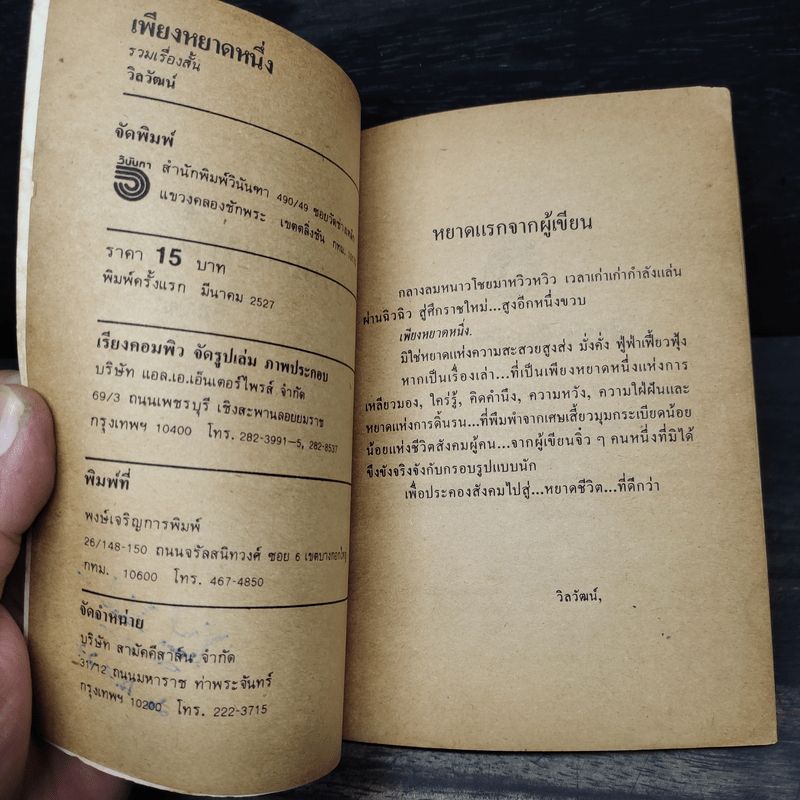 เพียงหยาดหนึ่ง
รวมเรื่องสั้น
วิลวัฒน์
จัดพิมพ์
วินันทา
สำนักพิมพ์วินันฑา 490/49 ซอยวัดช่างเหล็ก
แขวงคลองชักพระ เขตตลิ่งชัน กทม.
ราคา 15 บาท
พิมพ์ครั้งแรก มีนาคม 2527
เรียงคอมพิว จัดรูปเล่ม ภาพประกอบ
บริษัท แอล.เอ.เอ็นเตอร์ไพรส์ จำกัด
69/3 ถนนเพชรบุรี เชิงสะพานลอยยมราช
กรุงเทพฯ 10400 โทร. 282-3991-5, 282-8537
พิมพ์ที่
พงษ์เจริญการพิมพ์
26/148-150 ถนนจรัลสนิทวงศ์ ซอย 6 เขตบางกอกใหญ่
กทม. 10600 โทร. 467-4850
จัดจำหน่าย
บริษัท สามัคคีสาส์น จำกัด
31/12 ถนนมหาราช ท่าพระจันทร์
กรุงเทพฯ 10200 โทร. 222-3715
หยาดแรกจากผู้เขียน
กลางลมหนาวโชยมาหวิวหวิว เวลาเก่าเก่ากำลังแล่น
ผ่านฉิวฉิว สู่ศักราชใหม่...สูงอีกหนึ่งขวบ
เพียงหยาดหนึ่ง.
มิใช่หยาดแห่งความสะสวยสูงส่ง มั่งคั่ง ฟู่ฟ่าเฟี้ยวฟุ้ง
หากเป็นเรื่องเล่า...ที่เป็นเพียงหยาดหนึ่งแห่งการ
เหลียวมอง, ใคร่รู้, คิดคำนึง, ความหวัง, ความใฝ่ฝันและ
หยาดแห่งการดิ้นรน...ที่พิมพำจากเศษเสี้ยวมุมกระเบียดน้อย
น้อยแห่งชีวิตสังคมผู้คน...จากผู้เขียนจิ๋ว ๆ คนหนึ่งที่มิได้
ขึงขังจริงจังกับกรอบรูปแบบนัก
เพื่อประคองสังคมไปสู่...หยาดชีวิต...ที่ดีกว่า
วิลวัฒน์,